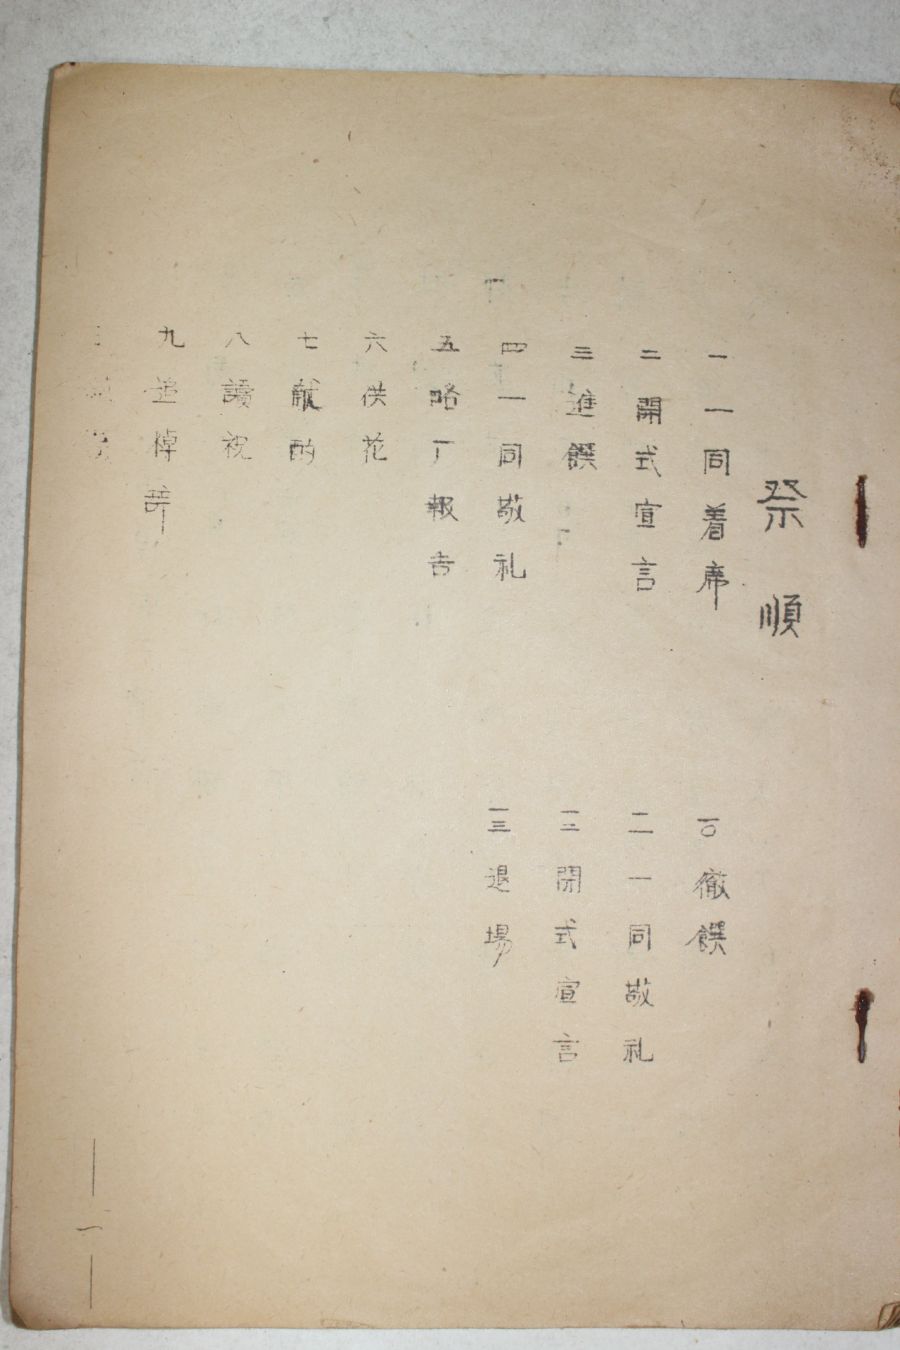 祭順
一 一同着席
二 開式宣言
三 進饌
四 一同敬礼
五 略丁報告
六 供花
七 献酌
八 讀祝
九 追悼辞
一〇 徹饌
一一 一同敬礼
一二 閉式宣言
一三 退場
一